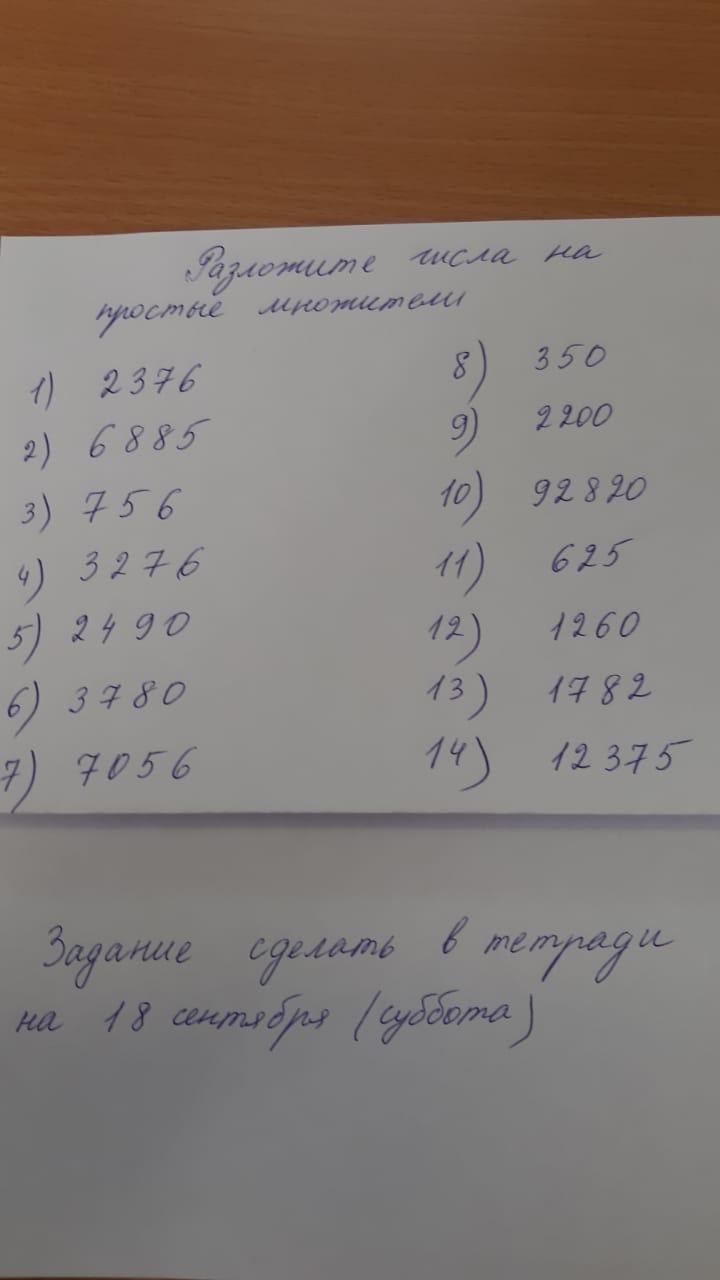 Разложите числа на
простые множители
1) 2376
2) 6885
3) 756
4) 3276
5) 2490
6) 3780
7) 7056
8) 350
9) 2200
10) 92820
11) 625
12) 1260
13) 1782
14) 12375
Задание сделать в тетради
на 18 сентября (суббота)